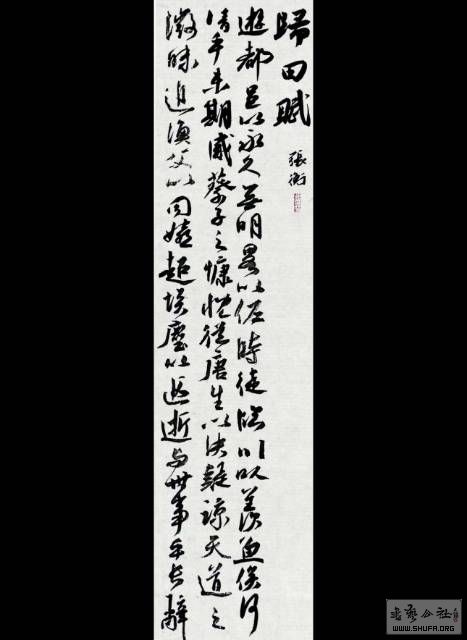 歸田賦
張衡
遊都邑以永久無明略以佐時徒臨川以羨魚俟河
清乎未期感蔡子之慷慨從唐生以決疑諒天道之
微昧追漁父以同嬉超埃塵以遐逝與世事乎長辭
WWW.SHUFA.ORG